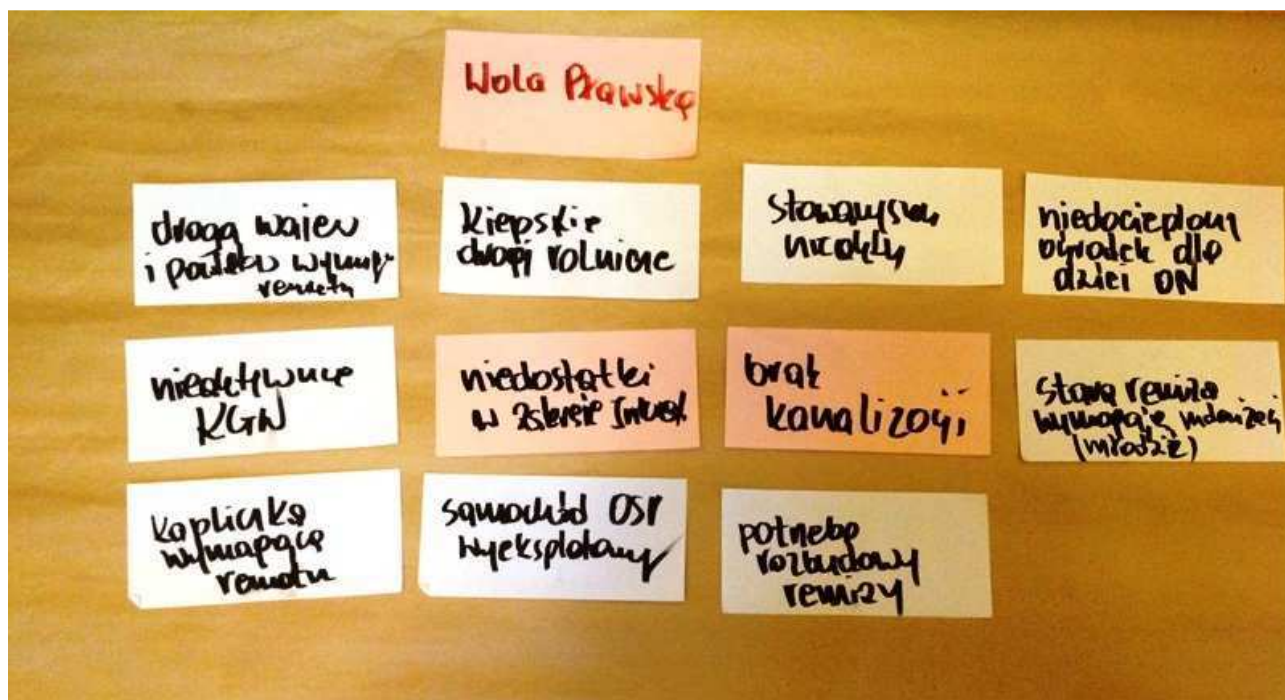 Wola Prawska
droga wojew
i powiatow wymaga
remontu
Kiepskie
drogi rolnicze
stowarzyszen
niedocieplony
ogródek dla
dzieci ON
nieaktywne
KGW
niedostatki
w zakresie
brak
kanalizacji
stara remiza
wymagająca
(młodzież)
kapliczka
wymagająca
remontu
samochód OSP
wyeksploatowany
potrzeba
rozbudowy
remizy